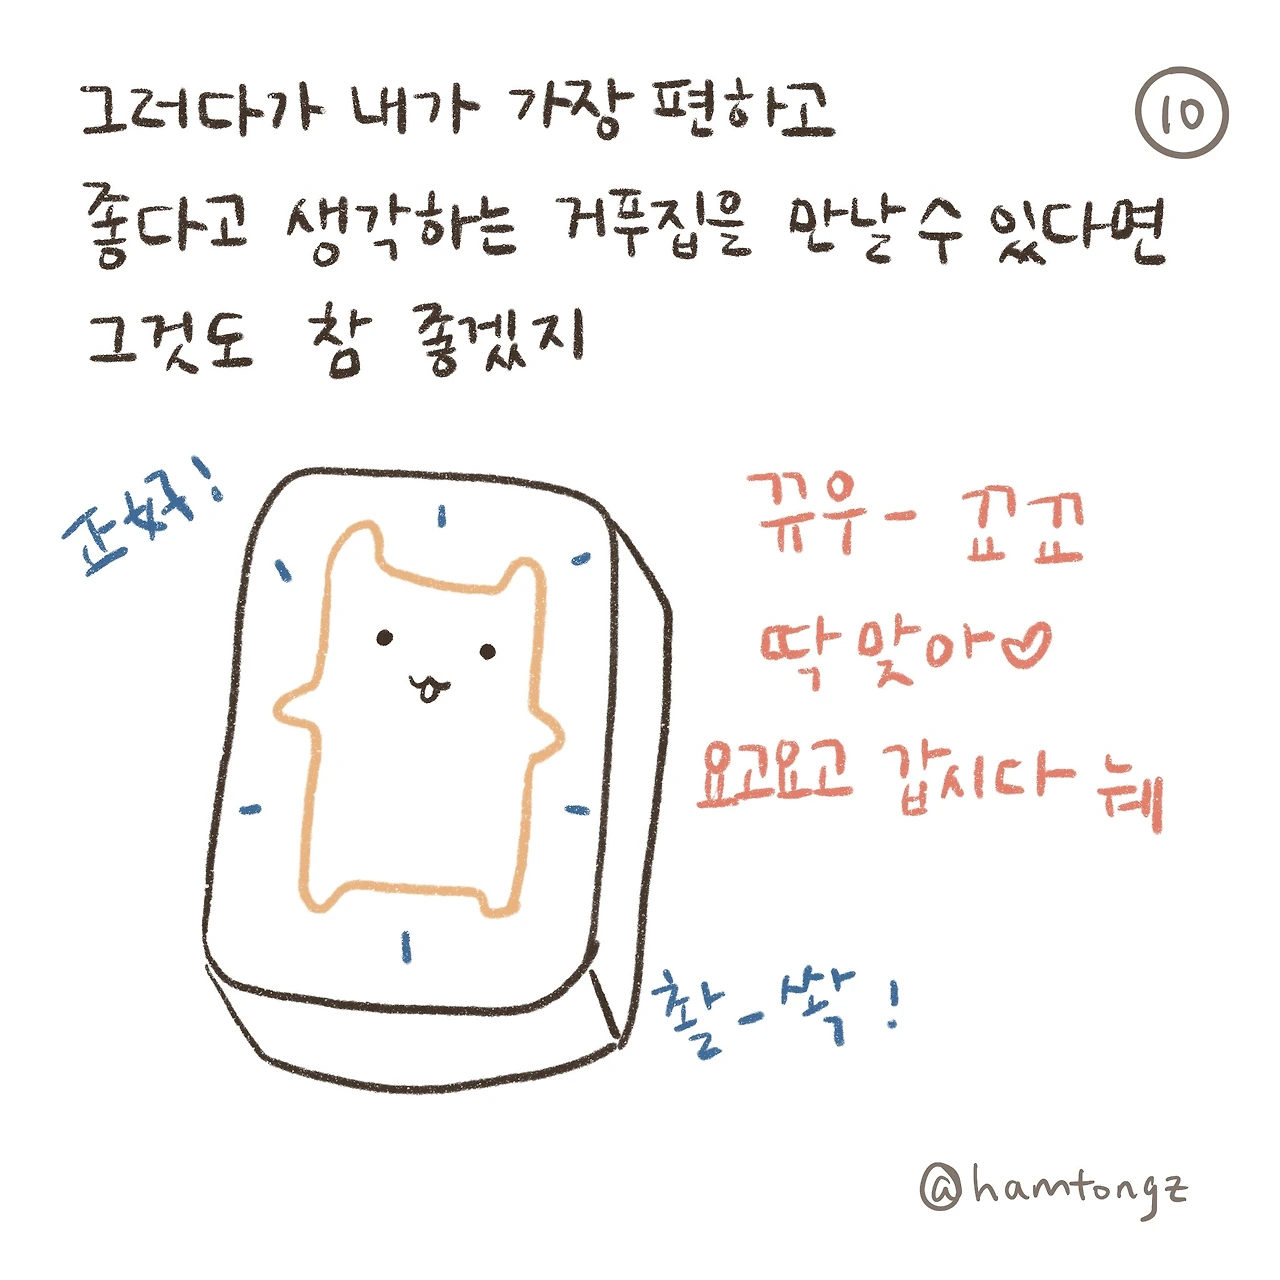 그러다가 내가 가장 편하고
10
좋다고 생각하는 거푸집을 만날 수 있다면
그것도 참 좋겠지
正好!
뀨우- 꾜꾜
딱 맞아♡
요고요고 갑시다 눼
촬-싹!
@hamtongz